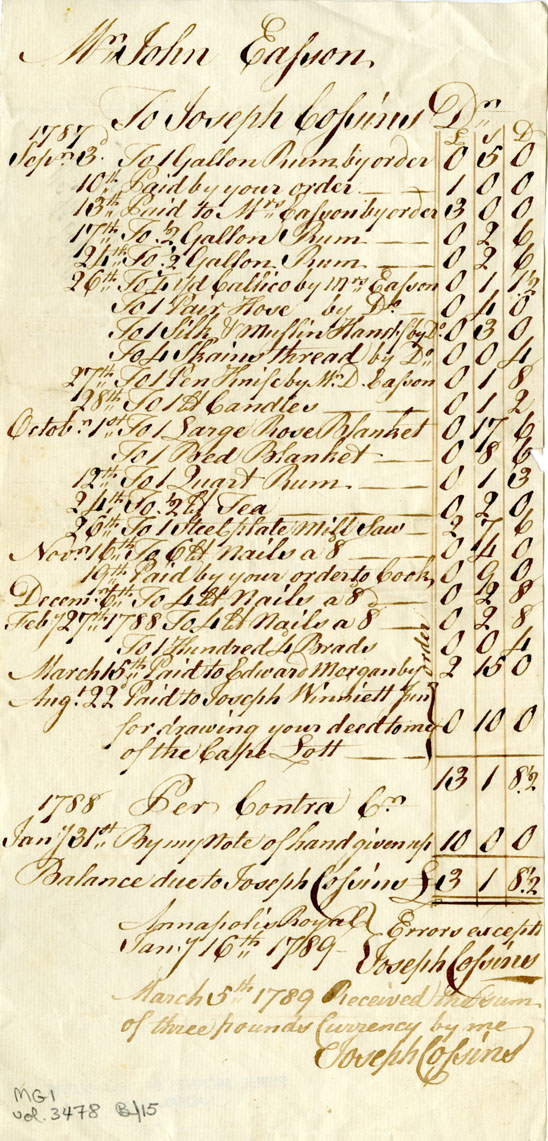 Mr. John Eaſson
To Joseph Coſsins Dr.
1787 £ S D
Sepr. 3d. To 1 Gallon Rum by order 0 5 0
10th. Paid by your order 1 0 0
13th Paid to Mrs. Eaſson by order 3 0 0
17th To ½ Gallon Rum 0 2 6
24th To ½ Gallon Rum 0 2 6
26th To 4 yd Callico by Mrs Eaſson 0 1 1½
To 1 Pair Hose by Do. 0 4 0
To 1 Silk & Muslin Handf by Do. 0 3 0
To 4 Skains thread by Do. 0 0 4
27th To 1 Pen Knife by Mr. D. Eaſson 0 1 8
28th To 1 ℔ Candles 0 1 2
Octobr. 1st. To 1 Large Rose Blanket 0 17 6
To 1 Bed Blanket 0 8 6
12th To 1 Quart Rum 0 1 3
24th To ½ ℔ Tea 0 2 0
26th To 1 Steel plate Mill Saw 2 7 6
Novr. 16th To 6 ℔ Nails a 8 0 4 0
19th Paid by your order to Cock 0 9 0
Decemr. 6th To 4 ℔ Nails a 8d 0 2 8
Feby 27th 1788 To 4 ℔ Nails a 8 0 2 8
To 1 Hundred 4d Brads 0 0 4
March 15th Paid to Edward Morgan by order 2 15 0
Augt. 22d Paid to Joseph Winniett Jun
for drawing your deed to my 0 10 0
of the Cape Lott
13 1 8½
1788 Per Contra Cr.
Jany 31st By my Note of hand given up 10 0 0
Balance due to Joseph Coſsins £ 3 1 8½
Annapolis Royal } Errors except
Jany 16th 1789 Joseph Coſsins
March 5th 1789 Received the sum
of three pounds Currency by me
Joseph Coſsins
MG1
vol. 3478 B/15